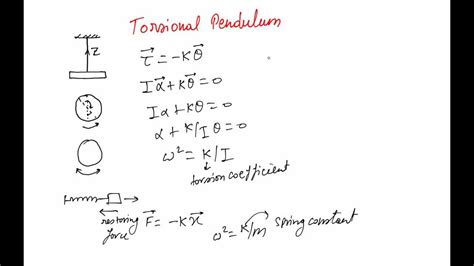 Torsional Pendulum
τ⃗ = -Kθ⃗
Iα⃗ + Kθ⃗ = 0
Iα + Kθ = 0
α + K/I θ = 0
ω² = K/I
torsion coefficient
restoring force F⃗ = -Kx⃗
ω² = K/m spring constant